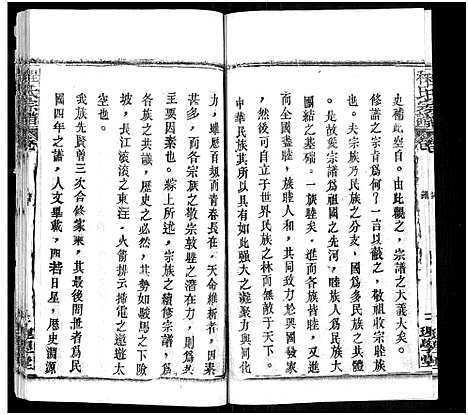 程氏宗譜
史補此空白。由此觀之，宗譜之大義大矣。
修譜之宗旨為何？一言以蔽之，敬祖收宗睦族
。是故奬宗譜為祖國之先河，族睦人為民族大
一。夫宗族乃民族之分支，國為多民族大家
團結之基礎。一族睦矣。進而各族皆睦，從
而全國盡睦，族睦人和，其同致力於興國安邦
，然後可自立于世界民族之林而無敵於天下。
中華民族其所以具有如此强大之凝聚力與同化
力，雖歷百刼而青春長在，天命維新者，因素
甚多，而各宗族之敬宗敦睦之傳統，不為其
要因素之一也。綜上所述，宗族之續修宗譜，為
各族之共識，歷史之必然，其勢如駿馬之下險
坡，長江滚滚之東注，火箭插云掃電之遨遊太
空也。
我族先賢曾三次合修家乘，其最後問世者為民
國四年之譜，人文畢載，四若日星，歷史淵源
程氏宗譜